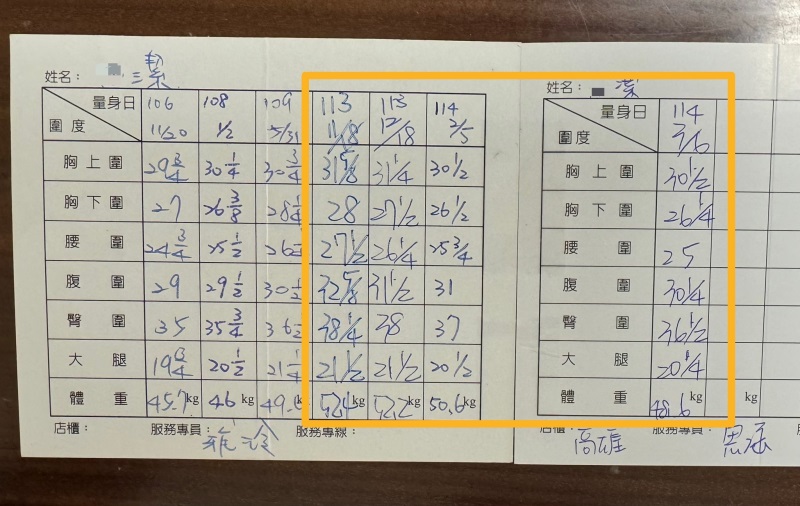 姓名： 三潔
量身日 106 11/20 108 1/2 109 5/31 113 11/18 113 12/18 114 2/5
圍度
胸上圍 29 3/4 30 1/4 30 3/4 31 5/8 31 1/4 30 1/2
胸下圍 27 26 3/8 28 1/4 28 27 1/2 26 1/2
腰圍 24 3/4 25 1/2 26 27 1/2 26 1/4 25 3/4
腹圍 29 29 1/2 30 1/2 32 5/8 31 1/2 31
臀圍 35 35 3/4 36 1/2 38 1/4 38 37
大腿 19 3/4 20 1/2 21 1/4 21 1/2 21 1/2 20 1/2
體重 45.7kg 46kg 49. kg 52.4kg 52.2kg 50.6kg
店櫃： 服務專員： 服務專線：
姓名： 潔
量身日 114 3/6
圍度
胸上圍 30 1/2
胸下圍 26 1/4
腰圍 25
腹圍 30 1/4
臀圍 36 1/2
大腿 20 1/4
體重 48.6kg kg
店櫃： 高雄 服務專員： 思